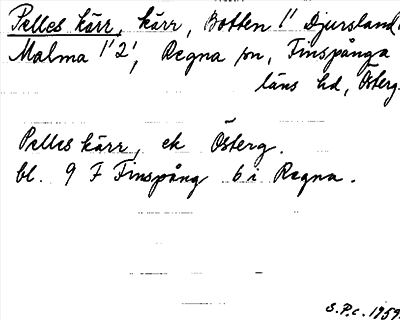 Pelles kärr, kärr, Botten 1' Djursland
Malma 1'2', Regna sn, Finspånga
läns hd, Österg.
Pelles kärr, ek Österg.
bl. 9 F Finspång 6 i Regna.
S.P.c. 1959